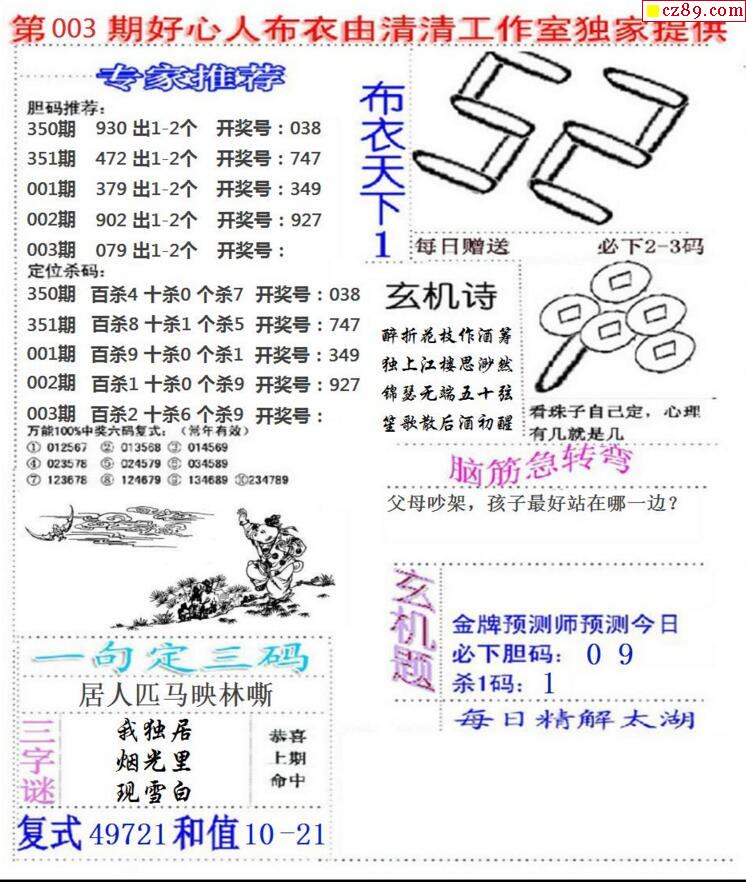 cz89.com
第003期好心人布衣由清清工作室独家提供
专家推荐
胆码推荐：
350期 930 出1-2个 开奖号：038
351期 472 出1-2个 开奖号：747
001期 379 出1-2个 开奖号：349
002期 902 出1-2个 开奖号：927
003期 079 出1-2个 开奖号：
定位杀码：
350期 百杀4 十杀0 个杀7 开奖号：038
351期 百杀8 十杀1 个杀5 开奖号：747
001期 百杀9 十杀0 个杀1 开奖号：349
002期 百杀1 十杀0 个杀9 开奖号：927
003期 百杀2 十杀6 个杀9 开奖号：
万能100%中奖六码复式：（常年有效）
① 012567 ② 013568 ③ 014569
④ 023578 ⑤ 024579 ⑥ 034589
⑦ 123678 ⑧ 124679 ⑨ 134689 ⑩234789
一句定三码
居人匹马映林嘶
三字谜
我独居
烟光里
现雪白
恭喜
上期
命中
复式 49721 和值 10-21
布衣天下1
52
每日赠送 必下2-3码
玄机诗
醉折花枝作酒筹
独上江楼思渺然
锦瑟无端五十弦
笙歌散后酒初醒
看珠子自己定，心理
有几就是几
脑筋急转弯
父母吵架，孩子最好站在哪一边？
玄机题
金牌预测师预测今日
必下胆码： 0 9
杀1码： 1
每日精解太湖